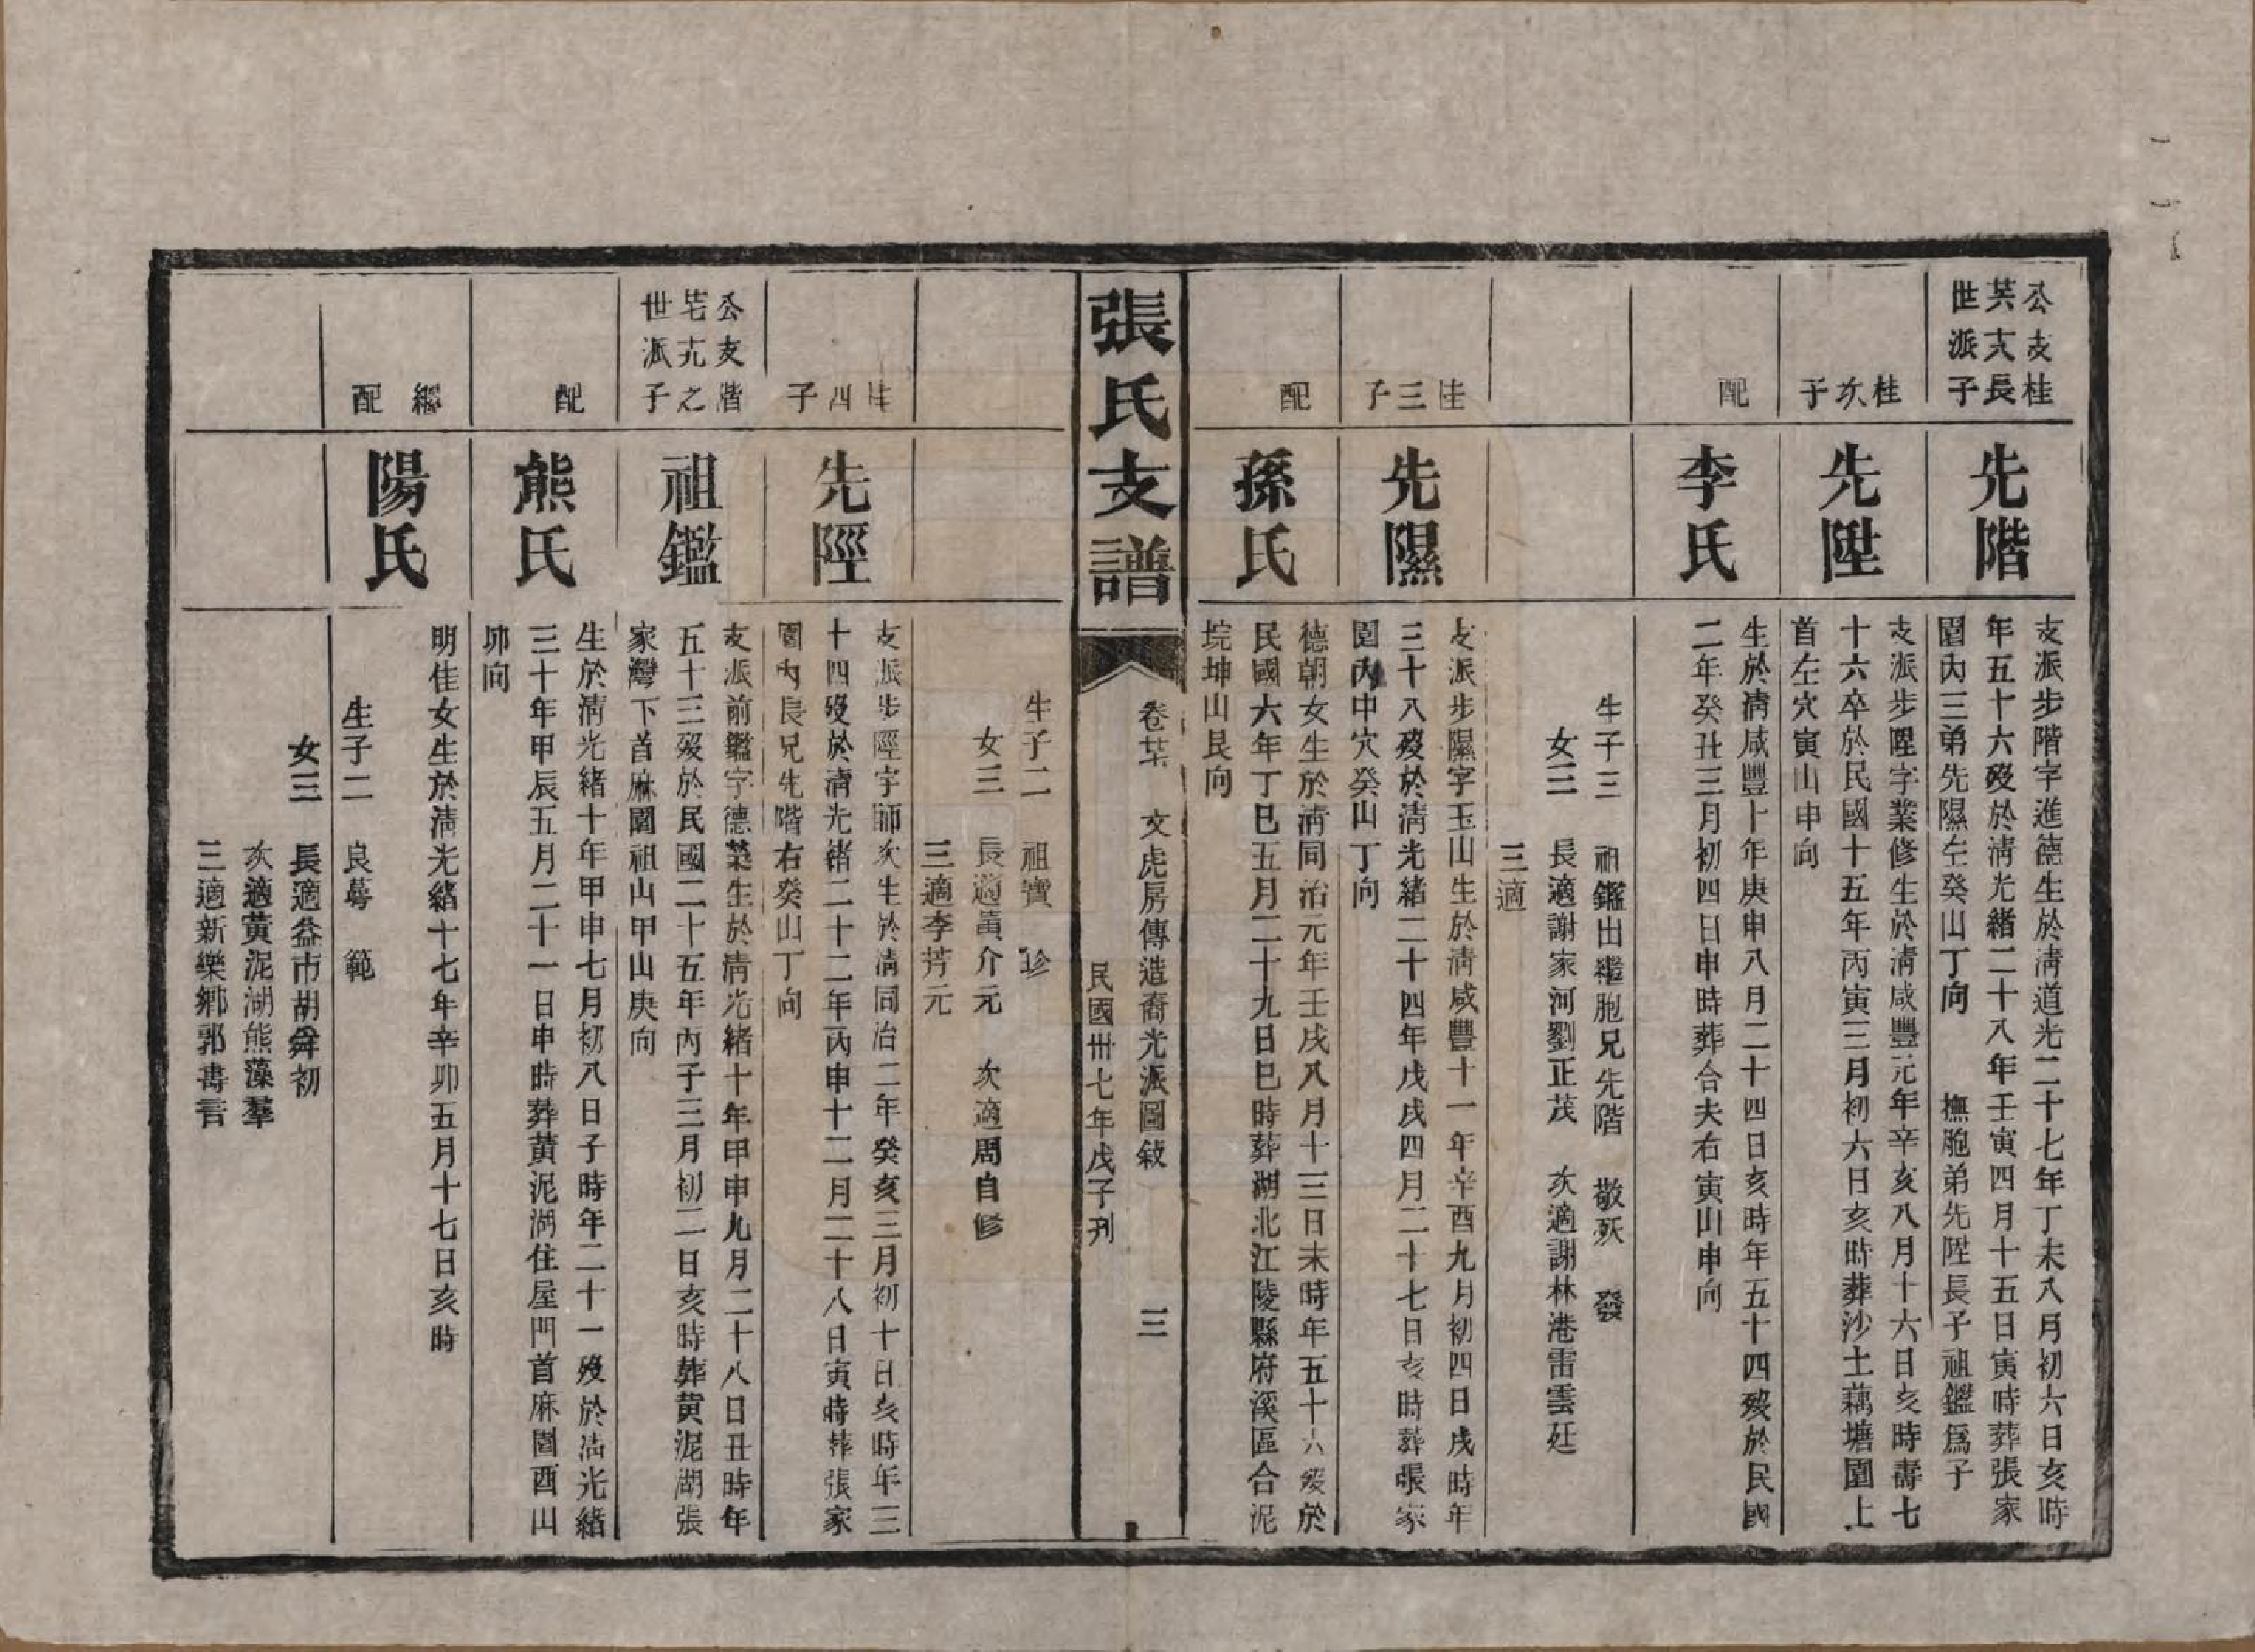 公支桂
其大長
世派子
先階
支派步階字進德生於清道光二十七年丁未八月初六日亥時
年五十六歿於清光緒二十八年壬寅四月十五日寅時葬張家
園內三弟先隰左癸山丁向　撫胞弟先陞長子祖鑑為子
桂次子
先陞
支派步陞字業修生於清咸豐元年辛亥八月十六日亥時壽七
十六卒於民國十五年丙寅三月初六日亥時葬沙土藕塘園上
首左穴寅山申向
配
李氏
生於清咸豐十年庚申八月二十四日亥時年五十四歿於民國
二年癸丑三月初四日申時葬合夫右寅山申向
生子三　祖鑑出繼胞兄先階　敬殀　發
女三　長適謝家河劉正茂　次適謝林港雷雲廷
三適
桂三子
先隰
支派步隰字玉山生於清咸豐十一年辛酉九月初四日戌時年
三十八歿於清光緒二十四年戊戌四月二十七日亥時葬張家
園內中穴癸山丁向
配
孫氏
德朝女生於清同治元年壬戌八月十三日未時年五十六歿於
民國六年丁巳五月二十九日巳時葬湖北江陵縣府溪區合泥
垸坤山艮向
張氏支譜
卷廿　文虎房傳造裔光派圖敘　三
民國卅七年戊子刊
生子二　祖寶　珍
女三　長適黃介元　次適周自修
三適李芳元
桂四子
先陘
支派步陘字師次生於清同治二年癸亥三月初十日亥時年三
十四歿於清光緒二十二年丙申十二月二十八日寅時葬張家
園內長兄先階右癸山丁向
公支階
宅亢之
世派子
祖鑑
支派前鑑字德榮生於清光緒十年甲申九月二十八日丑時年
五十三歿於民國二十五年丙子三月初二日亥時葬黃泥湖張
家灣下首麻園祖山甲山庚向
配
熊氏
生於清光緒十年甲申七月初八日子時年二十一歿於清光緒
三十年甲辰五月二十一日申時葬黃泥湖住屋門首麻園酉山
卯向
繼配
陽氏
明佳女生於清光緒十七年辛卯五月十七日亥時
生子二　良蕚　範
女三　長適益市胡舜初
次適黃泥湖熊藻羣
三適新樂鄉郭壽言